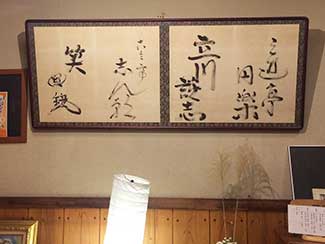 三遊亭
円楽
立川
談志
古今亭
志ん朝
笑
圓鏡